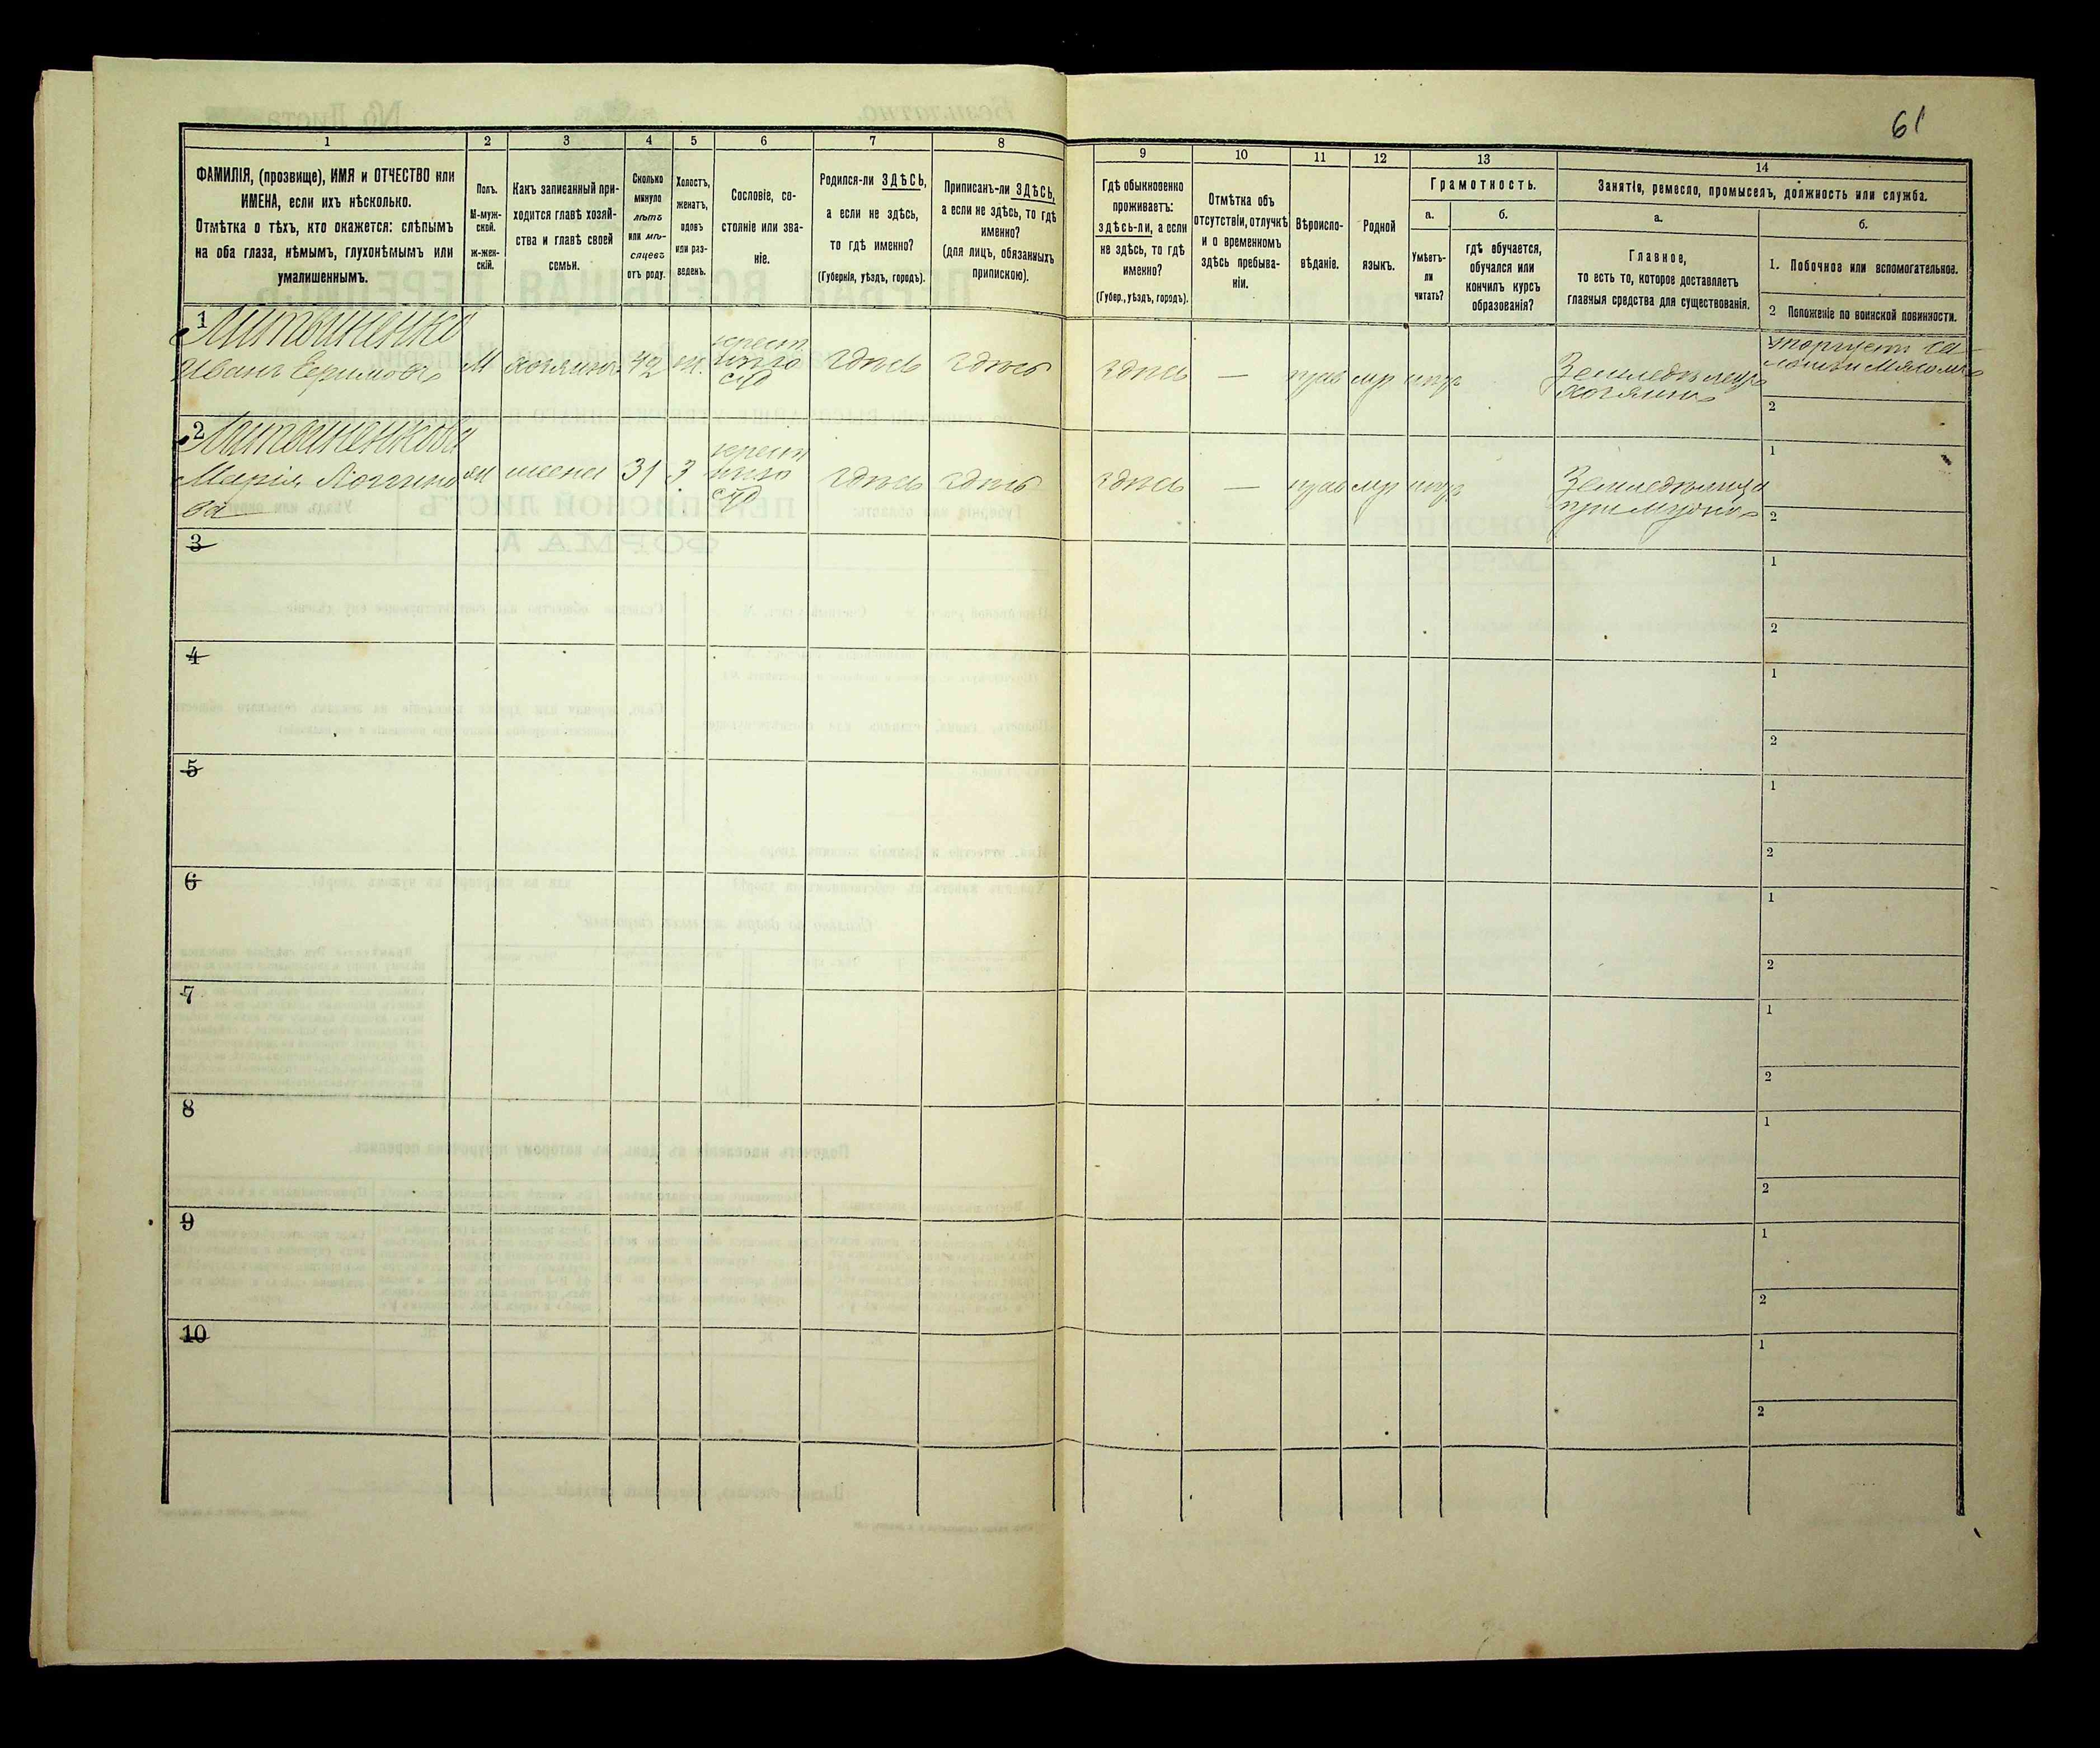 61
1 2 3 4 5 6 7 8 9 10 11 12 13 14
ФАМИЛІЯ, (прозвище), ИМЯ и ОТЧЕСТВО или
ИМЕНА, если ихъ нѣсколько.
Отмѣтка о тѣхъ, кто окажется: слѣпымъ
на оба глаза, нѣмымъ, глухонѣмымъ или
умалишеннымъ.
Полъ.
М-муж-
ской.
Ж-жен-
скій.
Какъ записанный при-
ходится главѣ хозяй-
ства и главѣ своей
семьи.
Сколько
минуло
лѣтъ
или мѣ-
сяцевъ
отъ роду.
Холостъ,
женатъ,
вдовъ
или раз-
веденъ.
Сословіе, со-
стояніе или зва-
ніе.
Родился-ли ЗДѢСЬ,
а если не здѣсь,
то гдѣ именно?
(Губернія, уѣздъ, городъ).
Приписанъ-ли ЗДѢСЬ,
а если не здѣсь, то гдѣ
именно?
(для лицъ, обязанныхъ
припискою).
Гдѣ обыкновенно
проживаетъ:
здѣсь-ли, а если
не здѣсь, то гдѣ
именно?
(Губер., уѣздъ, городъ).
Отмѣтка объ
отсутствіи, отлучкѣ
и о временномъ
здѣсь пребыва-
ніи.
Вѣроиспо-
вѣданіе.
Родной
языкъ.
Грамотность.
а.
Умѣетъ-
ли
читать?
б.
гдѣ обучается,
обучался или
кончилъ курсъ
образованія?
Занятіе, ремесло, промыселъ, должность или служба.
а.
Главное,
то есть то, которое доставляетъ
главныя средства для существованія.
б.
1. Побочное или вспомогательное.
2 Положеніе по воинской повинности.
1 Литвиненко
Иванъ Ефимовъ М хозяинъ 42 ж. здѣсь здѣсь здѣсь — прав мр
Земледѣлецъ
хозяинъ
2
2 Литвиненкова
Марія Логгино
ва жена 31 з здѣсь здѣсь здѣсь — прав мр
1
2
3
1
2
4
1
2
5
1
2
6
1
2
7
1
2
8
1
2
9
1
2
10
1
2